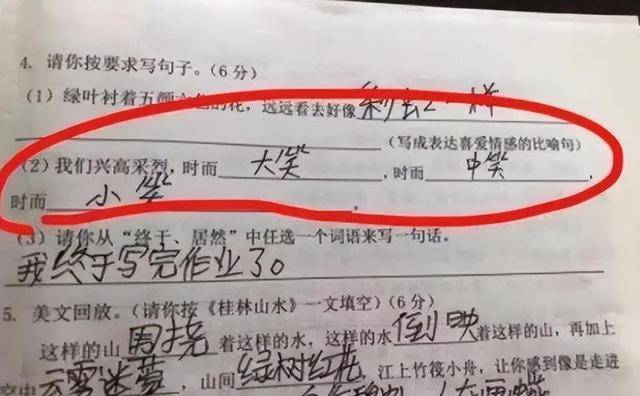 4. 请你按要求写句子。(6分)
(1) 绿叶衬着五颜六色的花，远远看去好像
一样
(写成表达喜爱情感的比喻句)
(2) 我们兴高采烈，时而大笑，时而中笑，
时而小笑。
(3) 请你从“终于、居然”中任选一个词语来写一句话。
我终于写完作业了。
5. 美文回放。(请你按《桂林山水》一文填空)(6分)
这样的山围绕着这样的水，这样的水倒映着这样的山，再加上
空中云雾迷蒙，山间绿树红花，江上竹筏小舟，让你感到像是走进